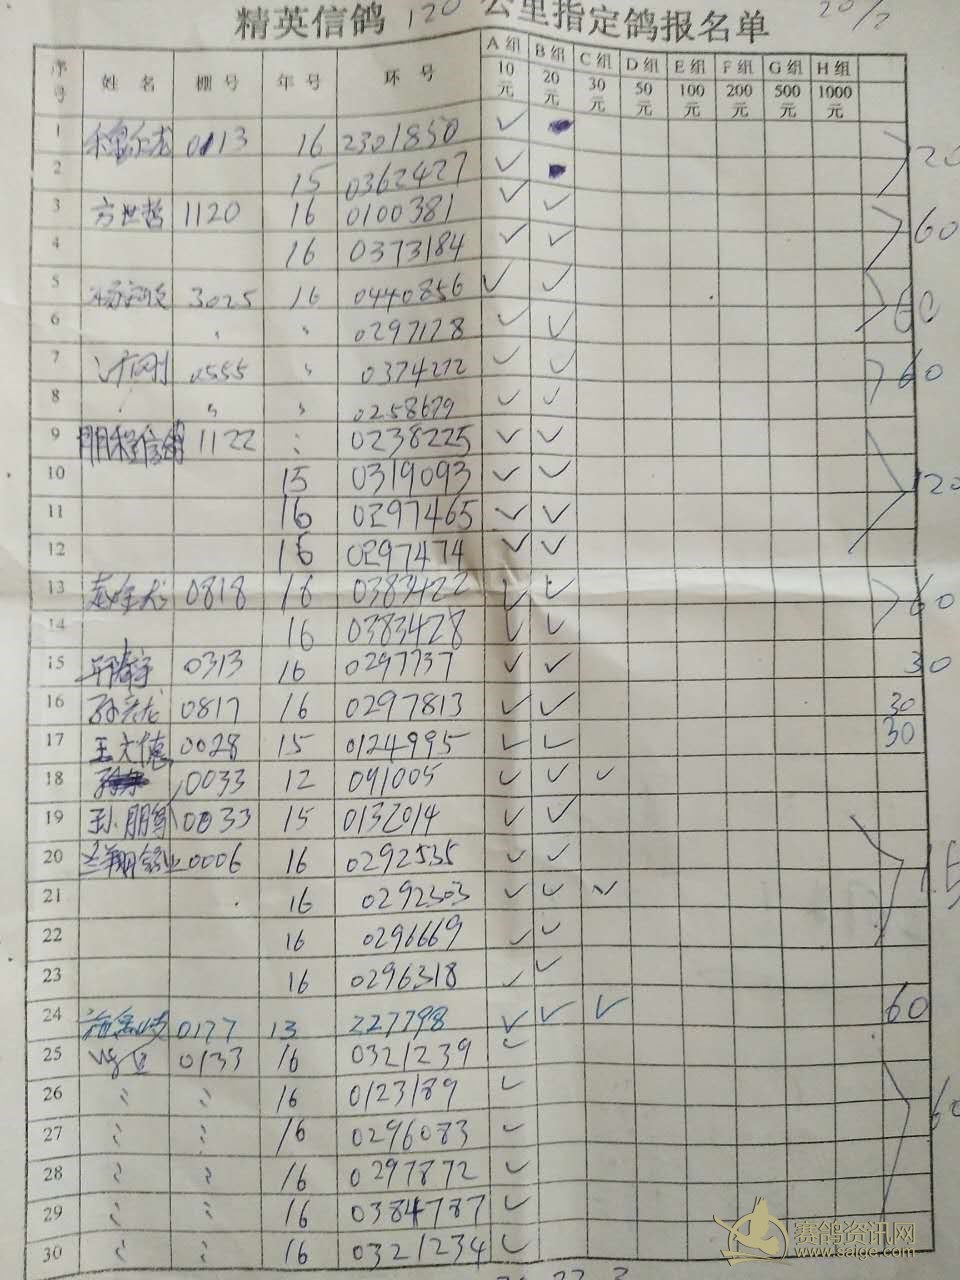 精英信鸽 120 公里指定鸽报名单 20/2
序号 姓 名 棚 号 年 号 环 号 A组 10元 B组 20元 C组 30元 D组 50元 E组 100元 F组 200元 G组 500元 H组 1000元
1 0113 16 2301850 ✓ 20
2 15 0362427 ✓
3 方世哲 1120 16 0100381 ✓ ✓ 60
4 16 0373184 ✓ ✓
5 3025 16 0440856 ✓ ✓ 60
6 〃 〃 0297128 ✓ ✓
7 0555 〃 0374272 ✓ ✓ 60
8 〃 〃 0258679 ✓ ✓
9 鹏程信鸽 1122 〃 0238225 ✓ ✓ 120
10 15 0319093 ✓ ✓
11 16 0297465 ✓ ✓
12 16 0297474 ✓ ✓
13 0818 16 0383422 ✓ ✓ 60
14 16 0383428 ✓ ✓
15 0313 16 0297737 ✓ ✓ 30
16 0817 16 0297813 ✓ ✓ 30
17 王文德 0028 15 0124995 ✓ ✓ 30
18 0033 12 091005 ✓ ✓ ✓
19 孙鹏 0033 15 0132014 ✓ ✓
20 兰翔鸽业 0006 16 0292535 ✓ ✓
21 16 0292303 ✓ ✓ ✓
22 16 0296669 ✓ ✓
23 16 0296318 ✓ ✓
24 0177 13 227798 ✓ ✓ ✓ 60
25 0133 16 0321239 ✓ 60
26 〃 〃 16 0123189 ✓
27 〃 〃 16 0296083 ✓
28 〃 〃 16 0297872 ✓
29 〃 〃 16 0384787 ✓
30 〃 〃 16 0321234 ✓
赛鸽资讯网
www.saige.com